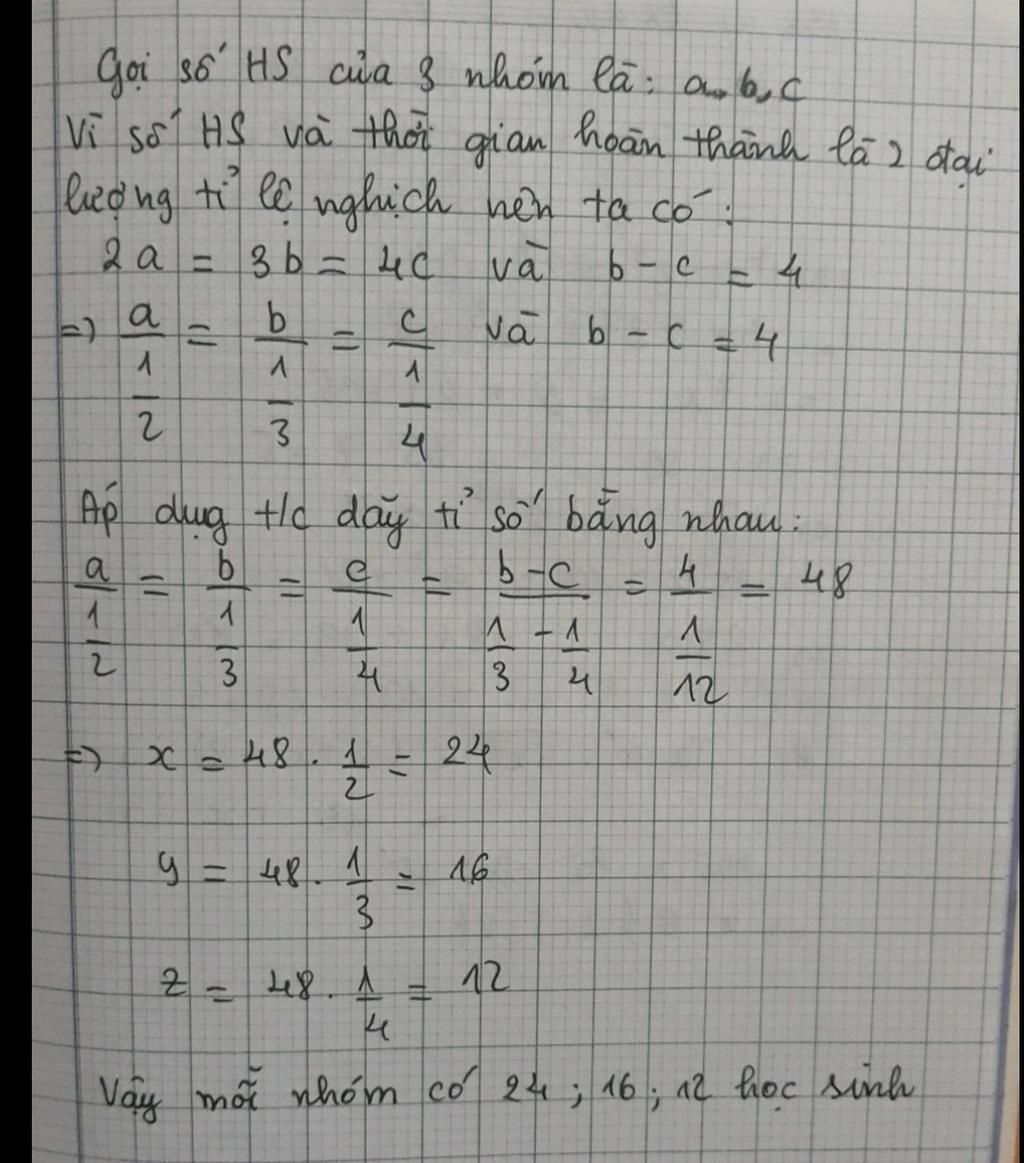 Gọi số HS của 3 nhóm là: a, b, c
Vì số HS và thời gian hoàn thành là 2 đại
lượng tỉ lệ nghịch nên ta có:
2a = 3b = 4c và b - c = 4
=> a/(1/2) = b/(1/3) = c/(1/4) và b - c = 4
Áp dụg t/c dãy tỉ số bằng nhau:
a/(1/2) = b/(1/3) = c/(1/4) = (b - c)/(1/3 - 1/4) = 4/(1/12) = 48
=> x = 48 . 1/2 = 24
y = 48 . 1/3 = 16
z = 48 . 1/4 = 12
Vậy mỗi nhóm có 24 ; 16 ; 12 học sinh